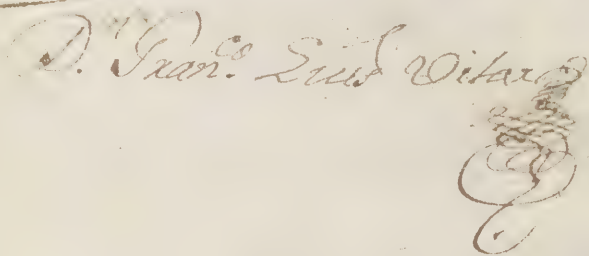 D. Fran.co Luis Vitar